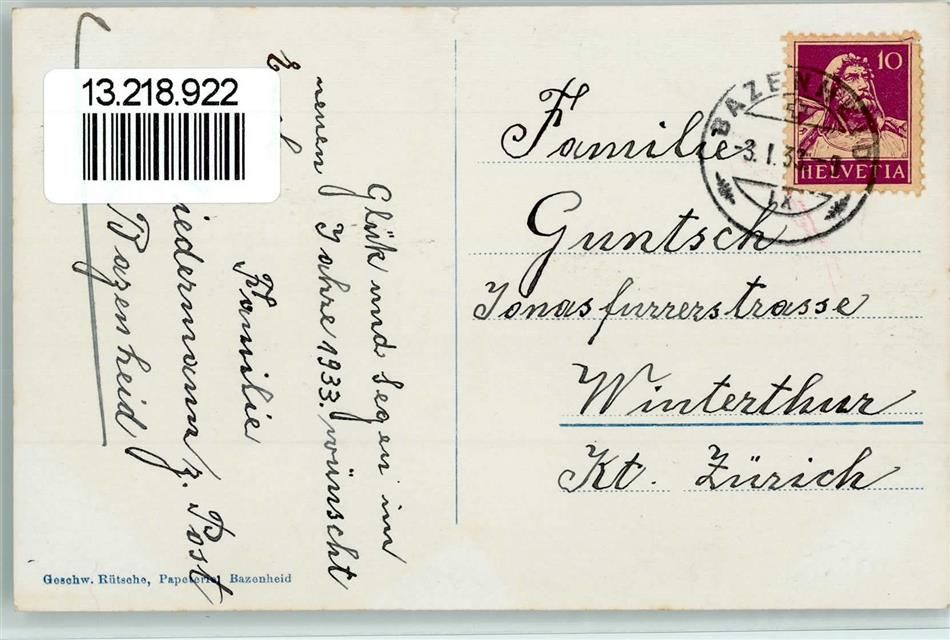 13.218.922
Glük und Segen im
neuen Jahre 1933. wünscht
Familie
iedermann z. Post
Bazenheid
Geschw. Rütsche, Papeterie, Bazenheid
10
HELVETIA
BAZENHEID
-3.I.33-
IX
Familie
Guntsch
Jonasfurrerstrasse
Winterthur
Kt. Zürich